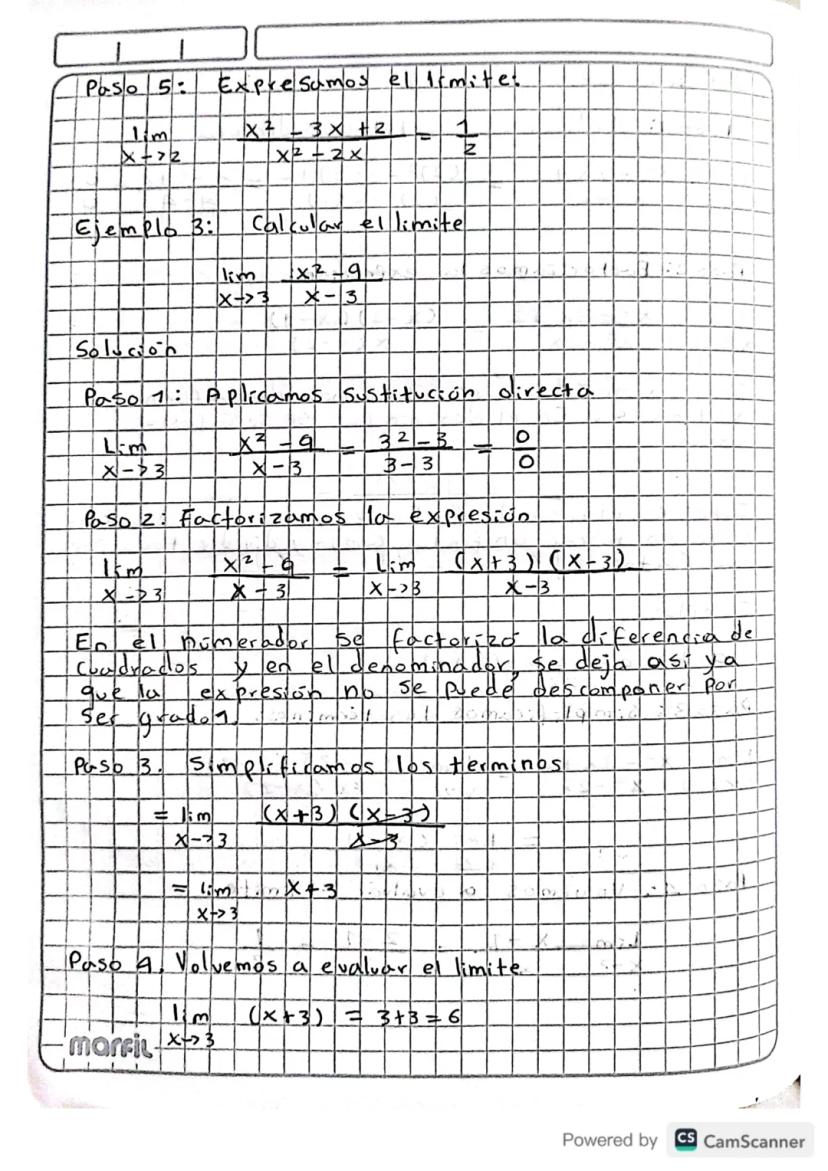 Paso 5: Expresamos el límite:
lim x->2 (x² - 3x + 2)/(x² - 2x) = 1/2
Ejemplo 3: Calcular el limite
lim x->3 (x² - 9)/(x - 3)
Solución
Paso 1: Aplicamos sustitución directa
Lim x->3 (x² - 9)/(x - 3) = (3² - 3)/(3 - 3) = 0/0
Paso 2: Factorizamos la expresión
lim x->3 (x² - 9)/(x - 3) = Lim x->3 (x+3)(x-3)/(x-3)
En el númerador se factorizó la diferencia de
cuadrados y en el denominador, se deja así ya
que la expresión no se puede descomponer por
ser grado 1
Paso 3. Simplificamos los terminos
= lim x->3 (x+3)(x-3)/(x-3)
= lim x->3 x+3
Paso 4. Volvemos a evaluar el limite
lim x->3 (x+3) = 3+3 = 6
marfil
Powered by CS CamScanner